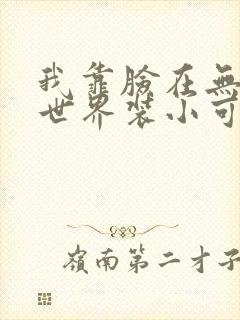 我靠臉在無
世界裝小可
嶺南第二才子